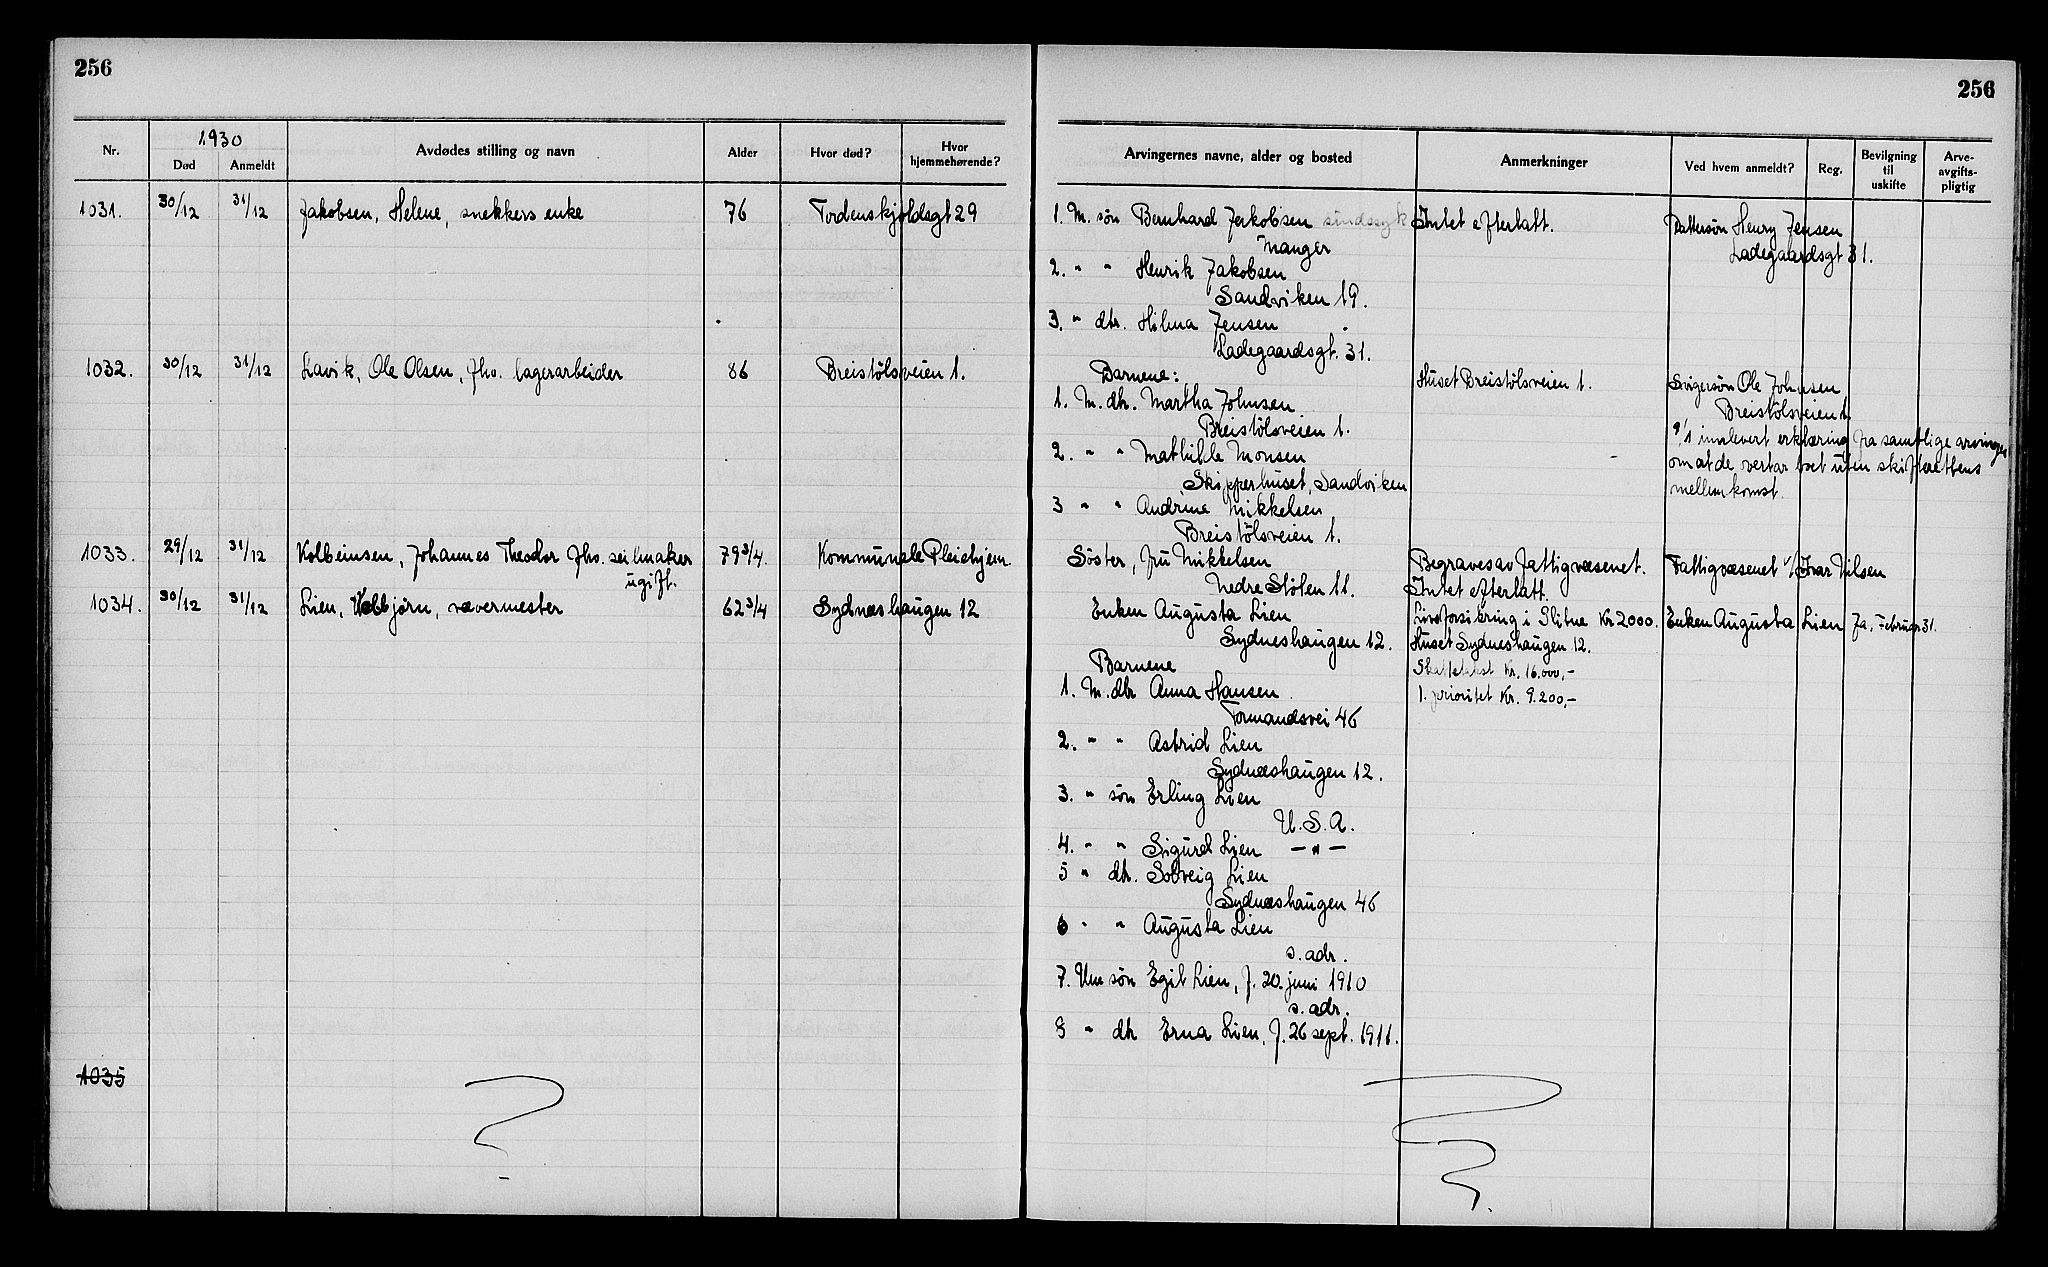 256
256
Nr.
1930
Død
Anmeldt
Avdødes stilling og navn
Alder
Hvor død?
Hvor hjemmehørende?
Arvingernes navne, alder og bosted
Anmerkninger
Ved hvem anmeldt?
Reg.
Bevilgning til uskifte
Arve-avgifts-pligtig
1031. 30/12 31/12 Jakobsen, Helene, snekkers enke 76 Tordenskjoldsgt 29
1. M. søn Bernhard Jakobsen sindssyk
Manger
2. " " Henrik Jakobsen
Sandviken 19.
3. " dtr. Hilma Jensen
Ladegaardsgt. 31.
Intet efterlatt.
Dattersøn Henry Jensen
Ladegaardsgt 31.
1032. 30/12 31/12 Lavik, Ole Olsen, fhv. lagerarbeider 86 Breistølsveien 1.
Barnene:
1. M. dtr. Martha Johnsen
Breistølsveien 1.
2. " " Mathilde Monsen
Skipperhuset, Sandviken
3 " " Andrine Mikkelsen
Breistølsveien 1.
Huset Breistølsveien 1.
Svigersøn Ole Johnsen
Breistølsveien 1.
9/1 innlevert erklæring fra samtlige arvinger
om at de overtar boet uten skifterettens
mellemkomst.
1033. 29/12 31/12 Kolbeinsen, Johannes Theodor fhv. seilmaker
ugift.
79 3/4. Kommunale Pleiehjem.
Søster, fru Mikkelsen
Nedre Støten 11.
Begraves av Fattigvæsenet.
Intet efterlatt.
Fattigvæsenet v/ Ivar Nilsen
1034. 30/12 31/12 Lien, Vebbjørn, vævermester 62 3/4 Sydneshaugen 12
Enken Augusta Lien
Sydneshaugen 12.
Barnene
1. M. dtr Anna Hansen
Formandsvei 46
2. " " Astrid Lien
Sydneshaugen 12.
3. " søn Erling Lien
U.S.A.
4. " " Sigurd Lien — " —
5 " dtr. Solveig Lien
Sydneshaugen 46
6 " " Augusta Lien
s. adr.
7. Um søn Egil Lien, f. 20. juni 1910
s. adr.
8 " dtr Erna Lien, f. 26 sept. 1911.
Livsforsikring i Glitne Kr 2000.
Huset Sydneshaugen 12.
Skattetakst Kr. 16.000,-
1. prioritet Kr. 9.200,-
Enken Augusta Lien
Ja, Februar 31.
1035